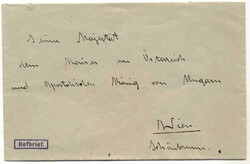 Seiner Majestät
dem Kaiser von Österreich
und Apostolischen König von Ungarn
Wien
Schönbrunn.
Hofbrief.